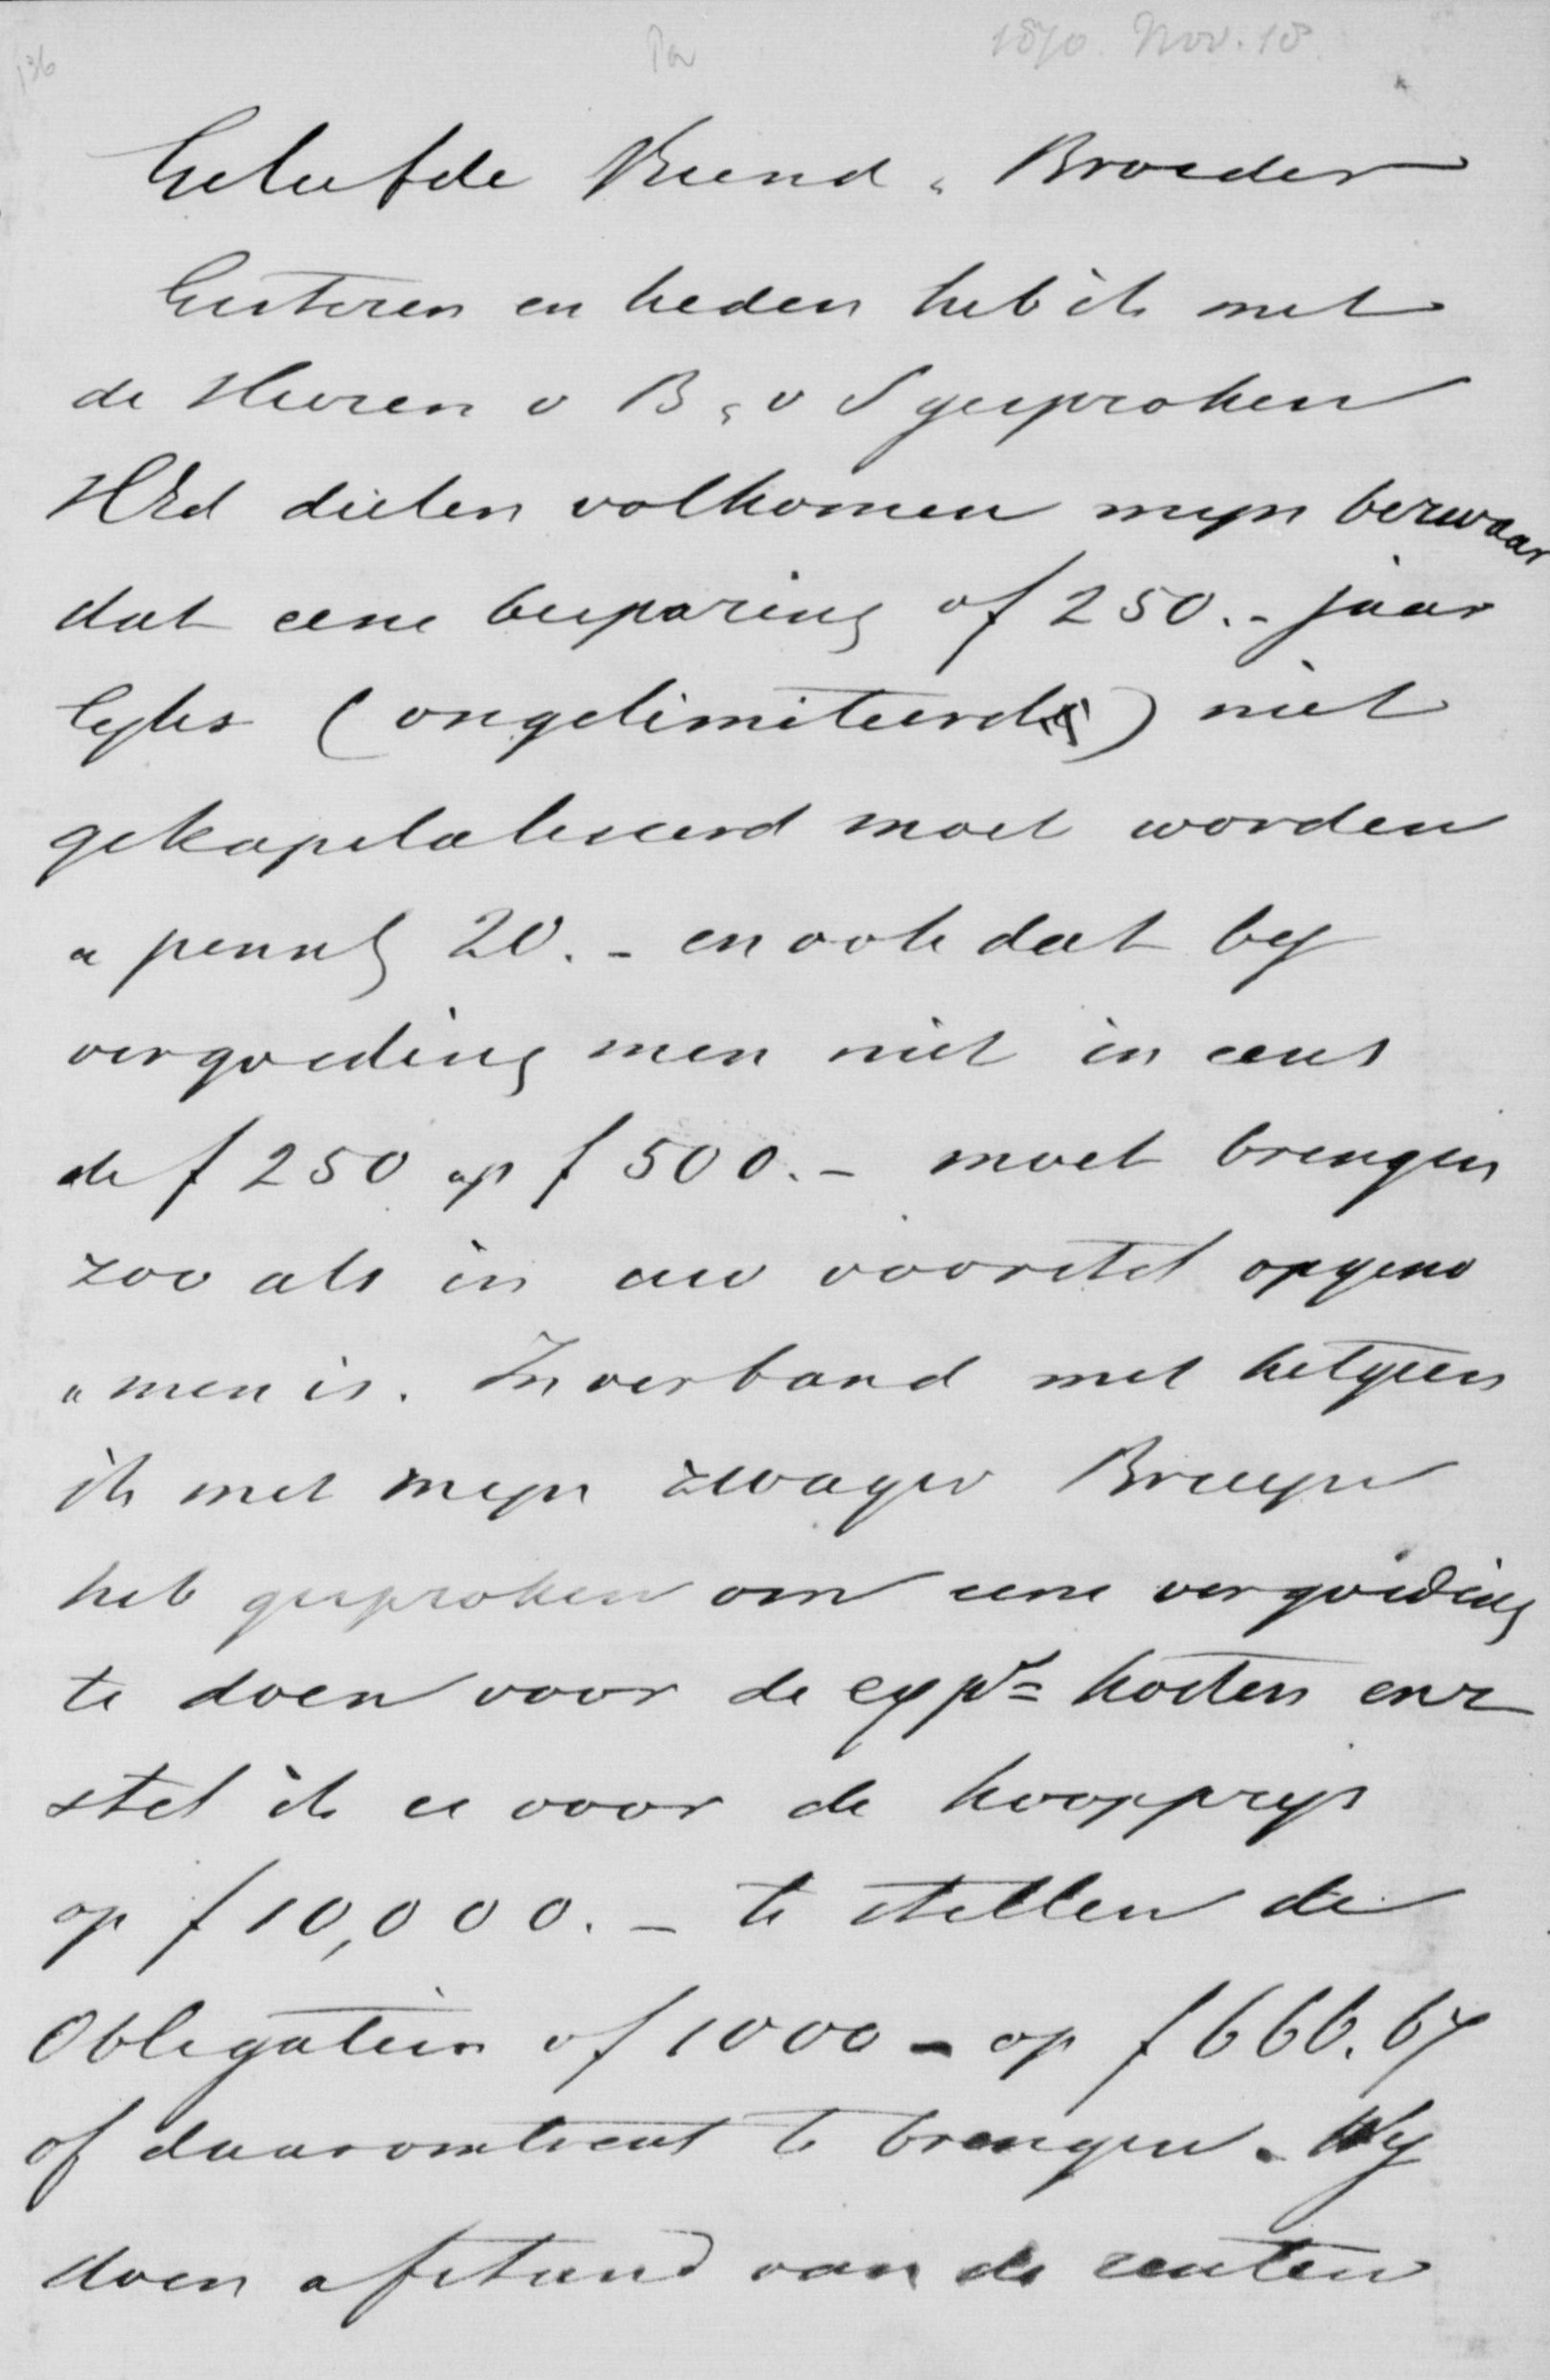 136
1870. Nov. 18
Geliefde Vriend & Broeder
Gisteren en heden heb ik met
de Heeren v B & v S gesproken
HEd dielen volkomen myn bezwaar
dat eene besparing of 250.- jaar
lyks (ongelimiteerd) niet
gekapitaliseerd moet worden
a penng 20.- en ook dat by
vergoeding men niet in eens
de f 250 op f 500.- moet brengen
zoo als in uw voorstel opgeno
"men is. In verband met hetgeen
ik met myn zwager Bruyn
heb gesproken om eene vergoeding
te doen voor de exple kosten enz
stel ik u voor de koopprys
op f 10,000.- te stellen de
Obligatien of 1000 - op f 666.67
of daaromtrent te brengen. Wy
doen afstand van de renten